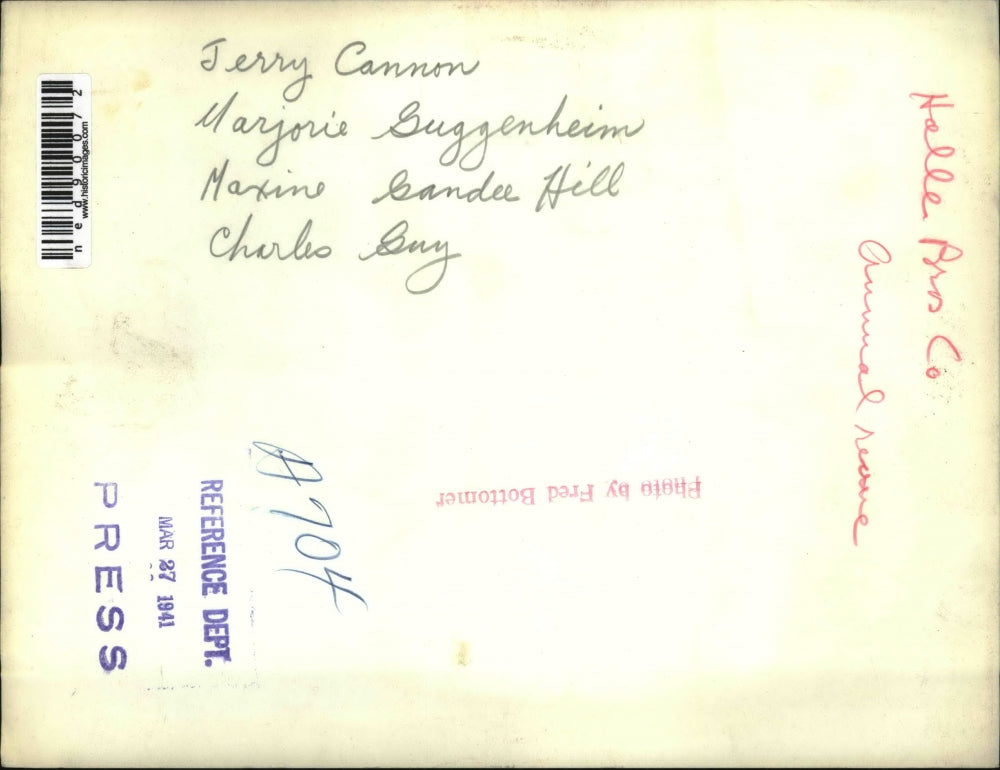 Jerry Cannon
Marjorie Guggenheim
Maxine Gandee Hill
Charles Guy
Halle Bros Co
annual revue
ned90072
www.historicimages.com
A704
Photo by Fred Bottomer
REFERENCE DEPT.
MAR 27 1941
PRESS